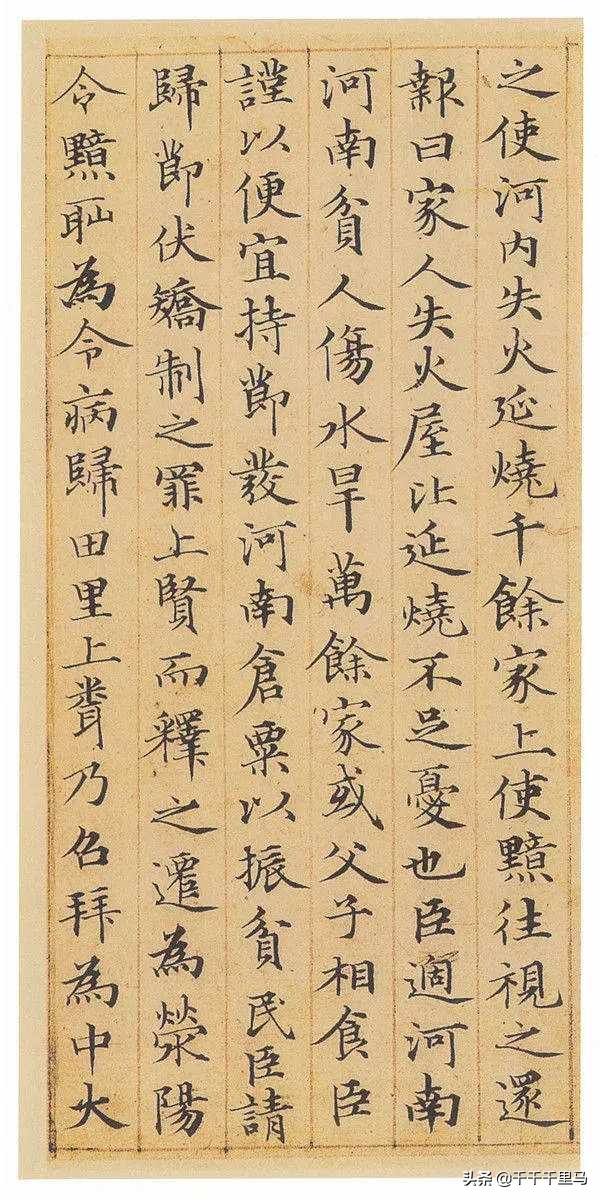 之使河内失火延燒千餘家上使黯往視之還
報曰家人失火屋比延燒不足憂也臣過河南
河南貧人傷水旱萬餘家或父子相食臣
謹以便宜持節發河南倉粟以振貧民臣請
歸節伏矯制之罪上賢而釋之遷為滎陽
令黯耻為令病歸田里上聞乃召拜為中大
头条 @千千千里马